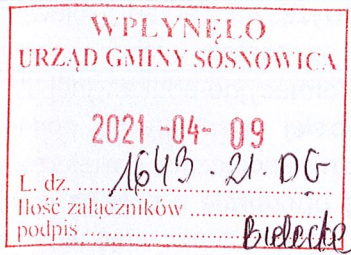 WPŁYNĘŁO
URZĄD GMINY SOSNOWICA
2021 -04- 09
L. dz. 1643.21.DG
Ilość załączników
podpis Bielecka